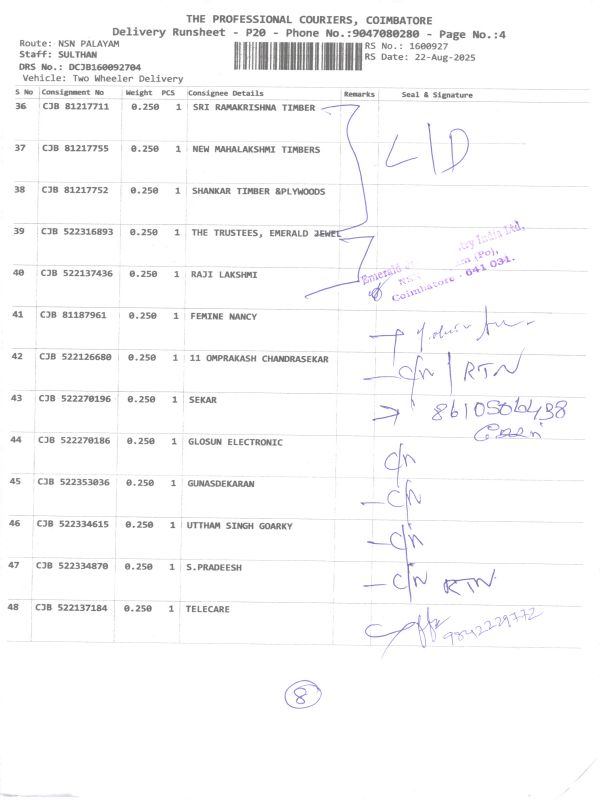 THE PROFESSIONAL COURIERS, COIMBATORE
Delivery Runsheet - P20 - Phone No.:9047080280 - Page No.:4
Route: NSN PALAYAM
RS No.: 1600927
Staff: SULTHAN
RS Date: 22-Aug-2025
DRS No.: DCJB160092704
Vehicle: Two Wheeler Delivery
S No Consignment No Weight PCS Consignee Details Remarks Seal & Signature
36 CJB 81217711 0.250 1 SRI RAMAKRISHNA TIMBER
L/D
37 CJB 81217755 0.250 1 NEW MAHALAKSHMI TIMBERS
38 CJB 81217752 0.250 1 SHANKAR TIMBER &PLYWOODS
39 CJB 522316893 0.250 1 THE TRUSTEES, EMERALD JEWEL
Emerald India Ltd,
(Po),
Coimbatore - 641 031.
40 CJB 522137436 0.250 1 RAJI LAKSHMI
41 CJB 81187961 0.250 1 FEMINE NANCY
42 CJB 522126680 0.250 1 11 OMPRAKASH CHANDRASEKAR
C/N / RTN
43 CJB 522270196 0.250 1 SEKAR
44 CJB 522270186 0.250 1 GLOSUN ELECTRONIC
C/N
45 CJB 522353036 0.250 1 GUNASDEKARAN
C/N
46 CJB 522334615 0.250 1 UTTHAM SINGH GOARKY
C/N
47 CJB 522334870 0.250 1 S.PRADEESH
C/N RTN
48 CJB 522137184 0.250 1 TELECARE
9842229772
8